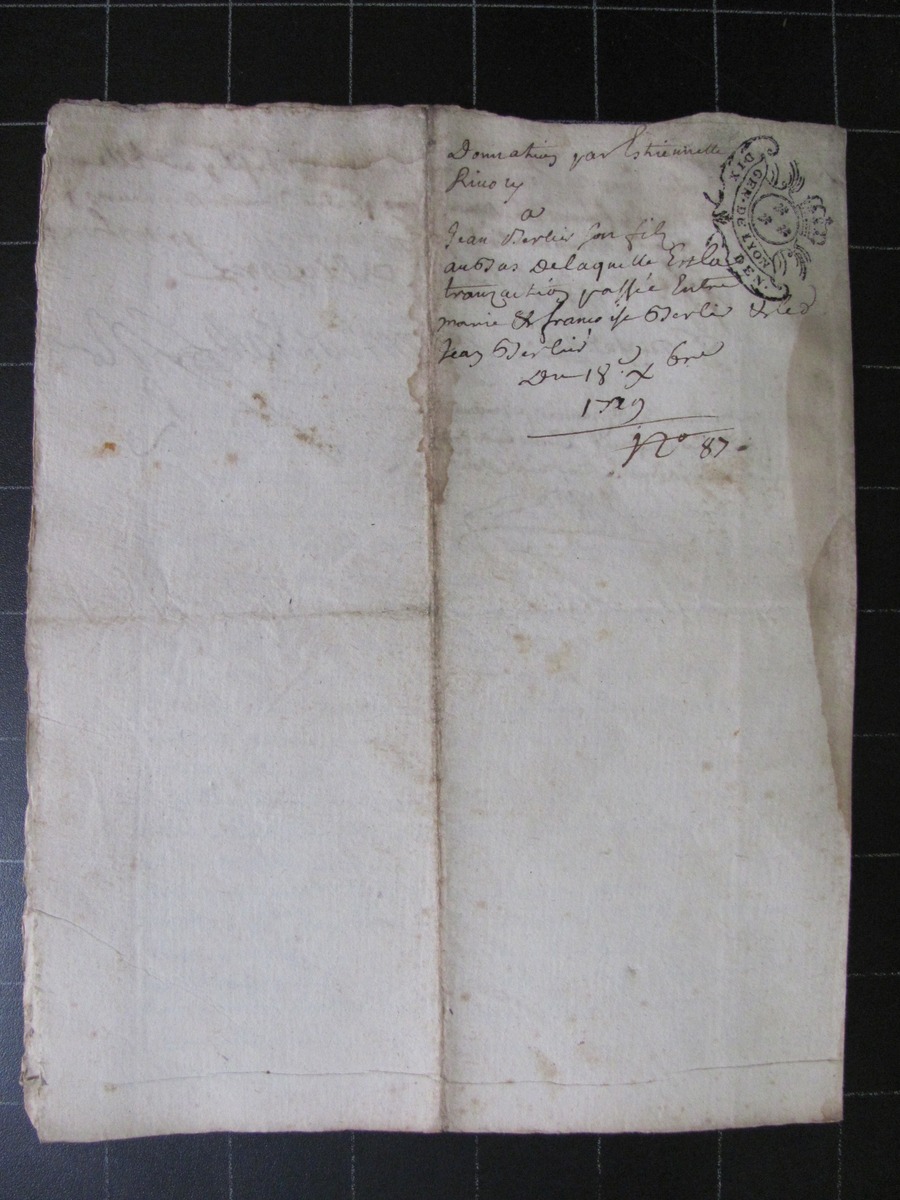 Donnation par Estiennette
Rivory
a
Jean Berlié son filz
au bas de laquelle Est la
tranzaction passée Entre
marie & francoise Berlié & led
Jean Berlié
Du 18e Xbre
1729
No 87
GEN. DE LYON
DIX DEN.